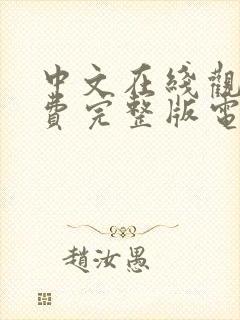 中文在綫觀
費完整版電
趙汝愚